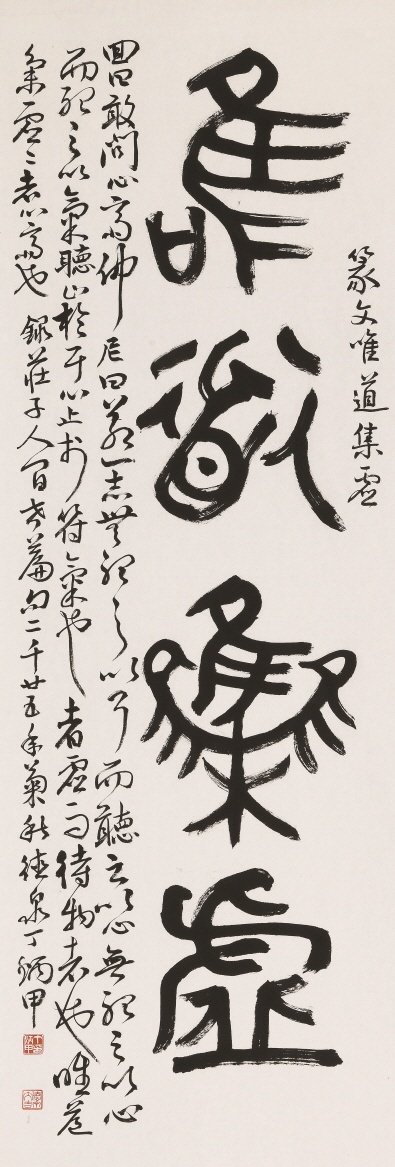 篆文唯道集虛
唯道集虛
回曰敢問心齋仲尼曰若一志無聽之以耳而聽之以心無聽之以心
而聽之以氣聽止於耳心止於符氣也者虛而待物者也唯道
集虛〻者心齋也 錄莊子人間世篇句二千廿五年菊秋德泉丁甲